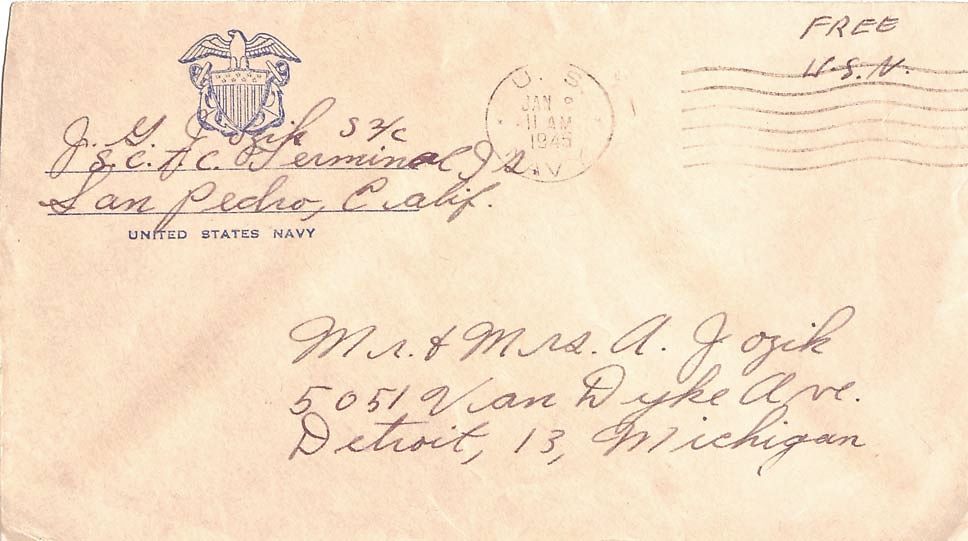 FREE
U.S.N.
U. S.
JAN
11 AM
1945
J. G. Jozik S 2/c
S.C.T.C. Terminal Is.
San Pedro, Calif.
UNITED STATES NAVY
Mr. & Mrs. A. Jozik
5051 Van Dyke Ave.
Detroit, 13, Michigan